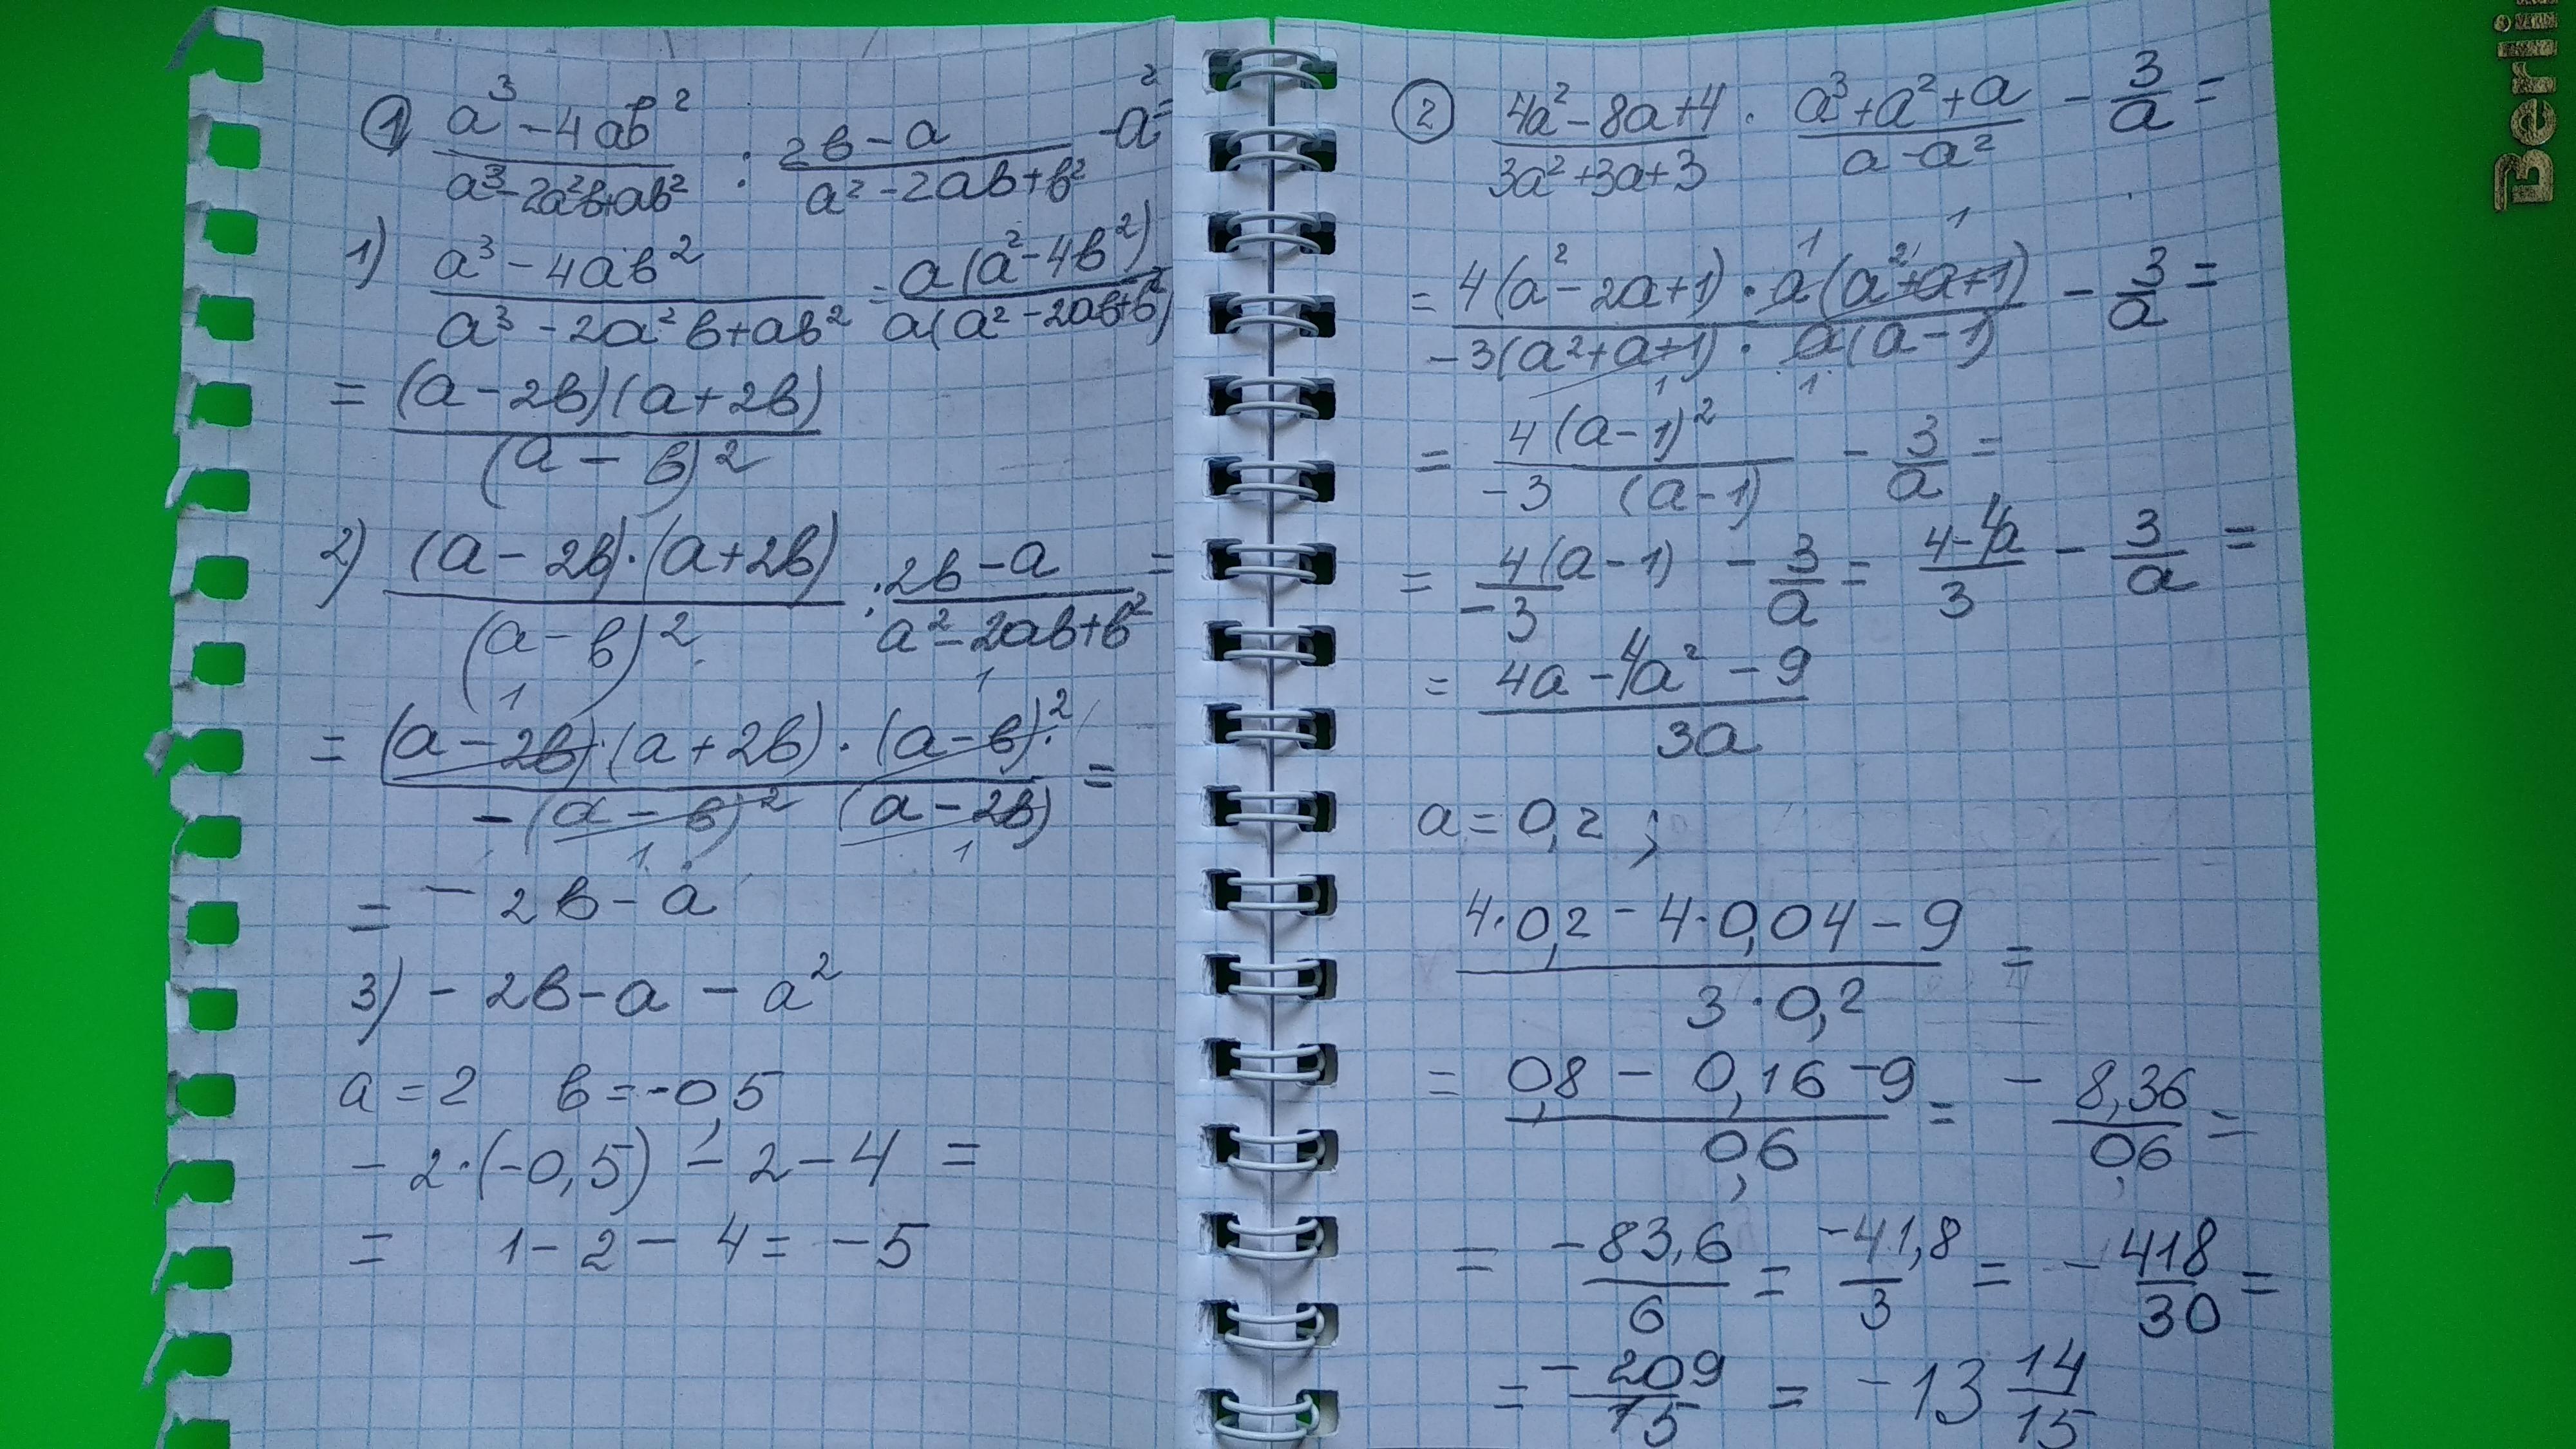 ① (a³ - 4ab²)/(a³ - 2a²b + ab²) : (2b - a)/(a² - 2ab + b²) - a² =
1) (a³ - 4ab²)/(a³ - 2a²b + ab²) = a(a² - 4b²)/a(a² - 2ab + b²)
= (a - 2b)(a + 2b)/(a - b)²
2) (a - 2b)·(a + 2b)/(a - b)² : (2b - a)/(a² - 2ab + b²) =
= (a - 2b)·(a + 2b)·(a - b)²/-(a - b)² (a - 2b) =
= - 2b - a
3) - 2b - a - a²
a = 2 b = -0,5
- 2·(-0,5) - 2 - 4 =
= 1 - 2 - 4 = -5
② (4a² - 8a + 4)/(3a² + 3a + 3) · (a³ + a² + a)/(a - a²) - 3/a =
= 4(a² - 2a + 1)·a(a² + a + 1)/-3(a² + a + 1)·a(a - 1) - 3/a =
= 4(a - 1)²/-3 (a - 1) - 3/a =
= 4(a - 1)/-3 - 3/a = (4 - 4a)/3 - 3/a =
= (4a - 4a² - 9)/3a
a = 0,2 ;
(4·0,2 - 4·0,04 - 9)/(3·0,2) =
= (0,8 - 0,16 - 9)/0,6 = - 8,36/0,6 =
= -83,6/6 = -41,8/3 = - 418/30 =
= - 209/15 = -13 14/15
Berlin